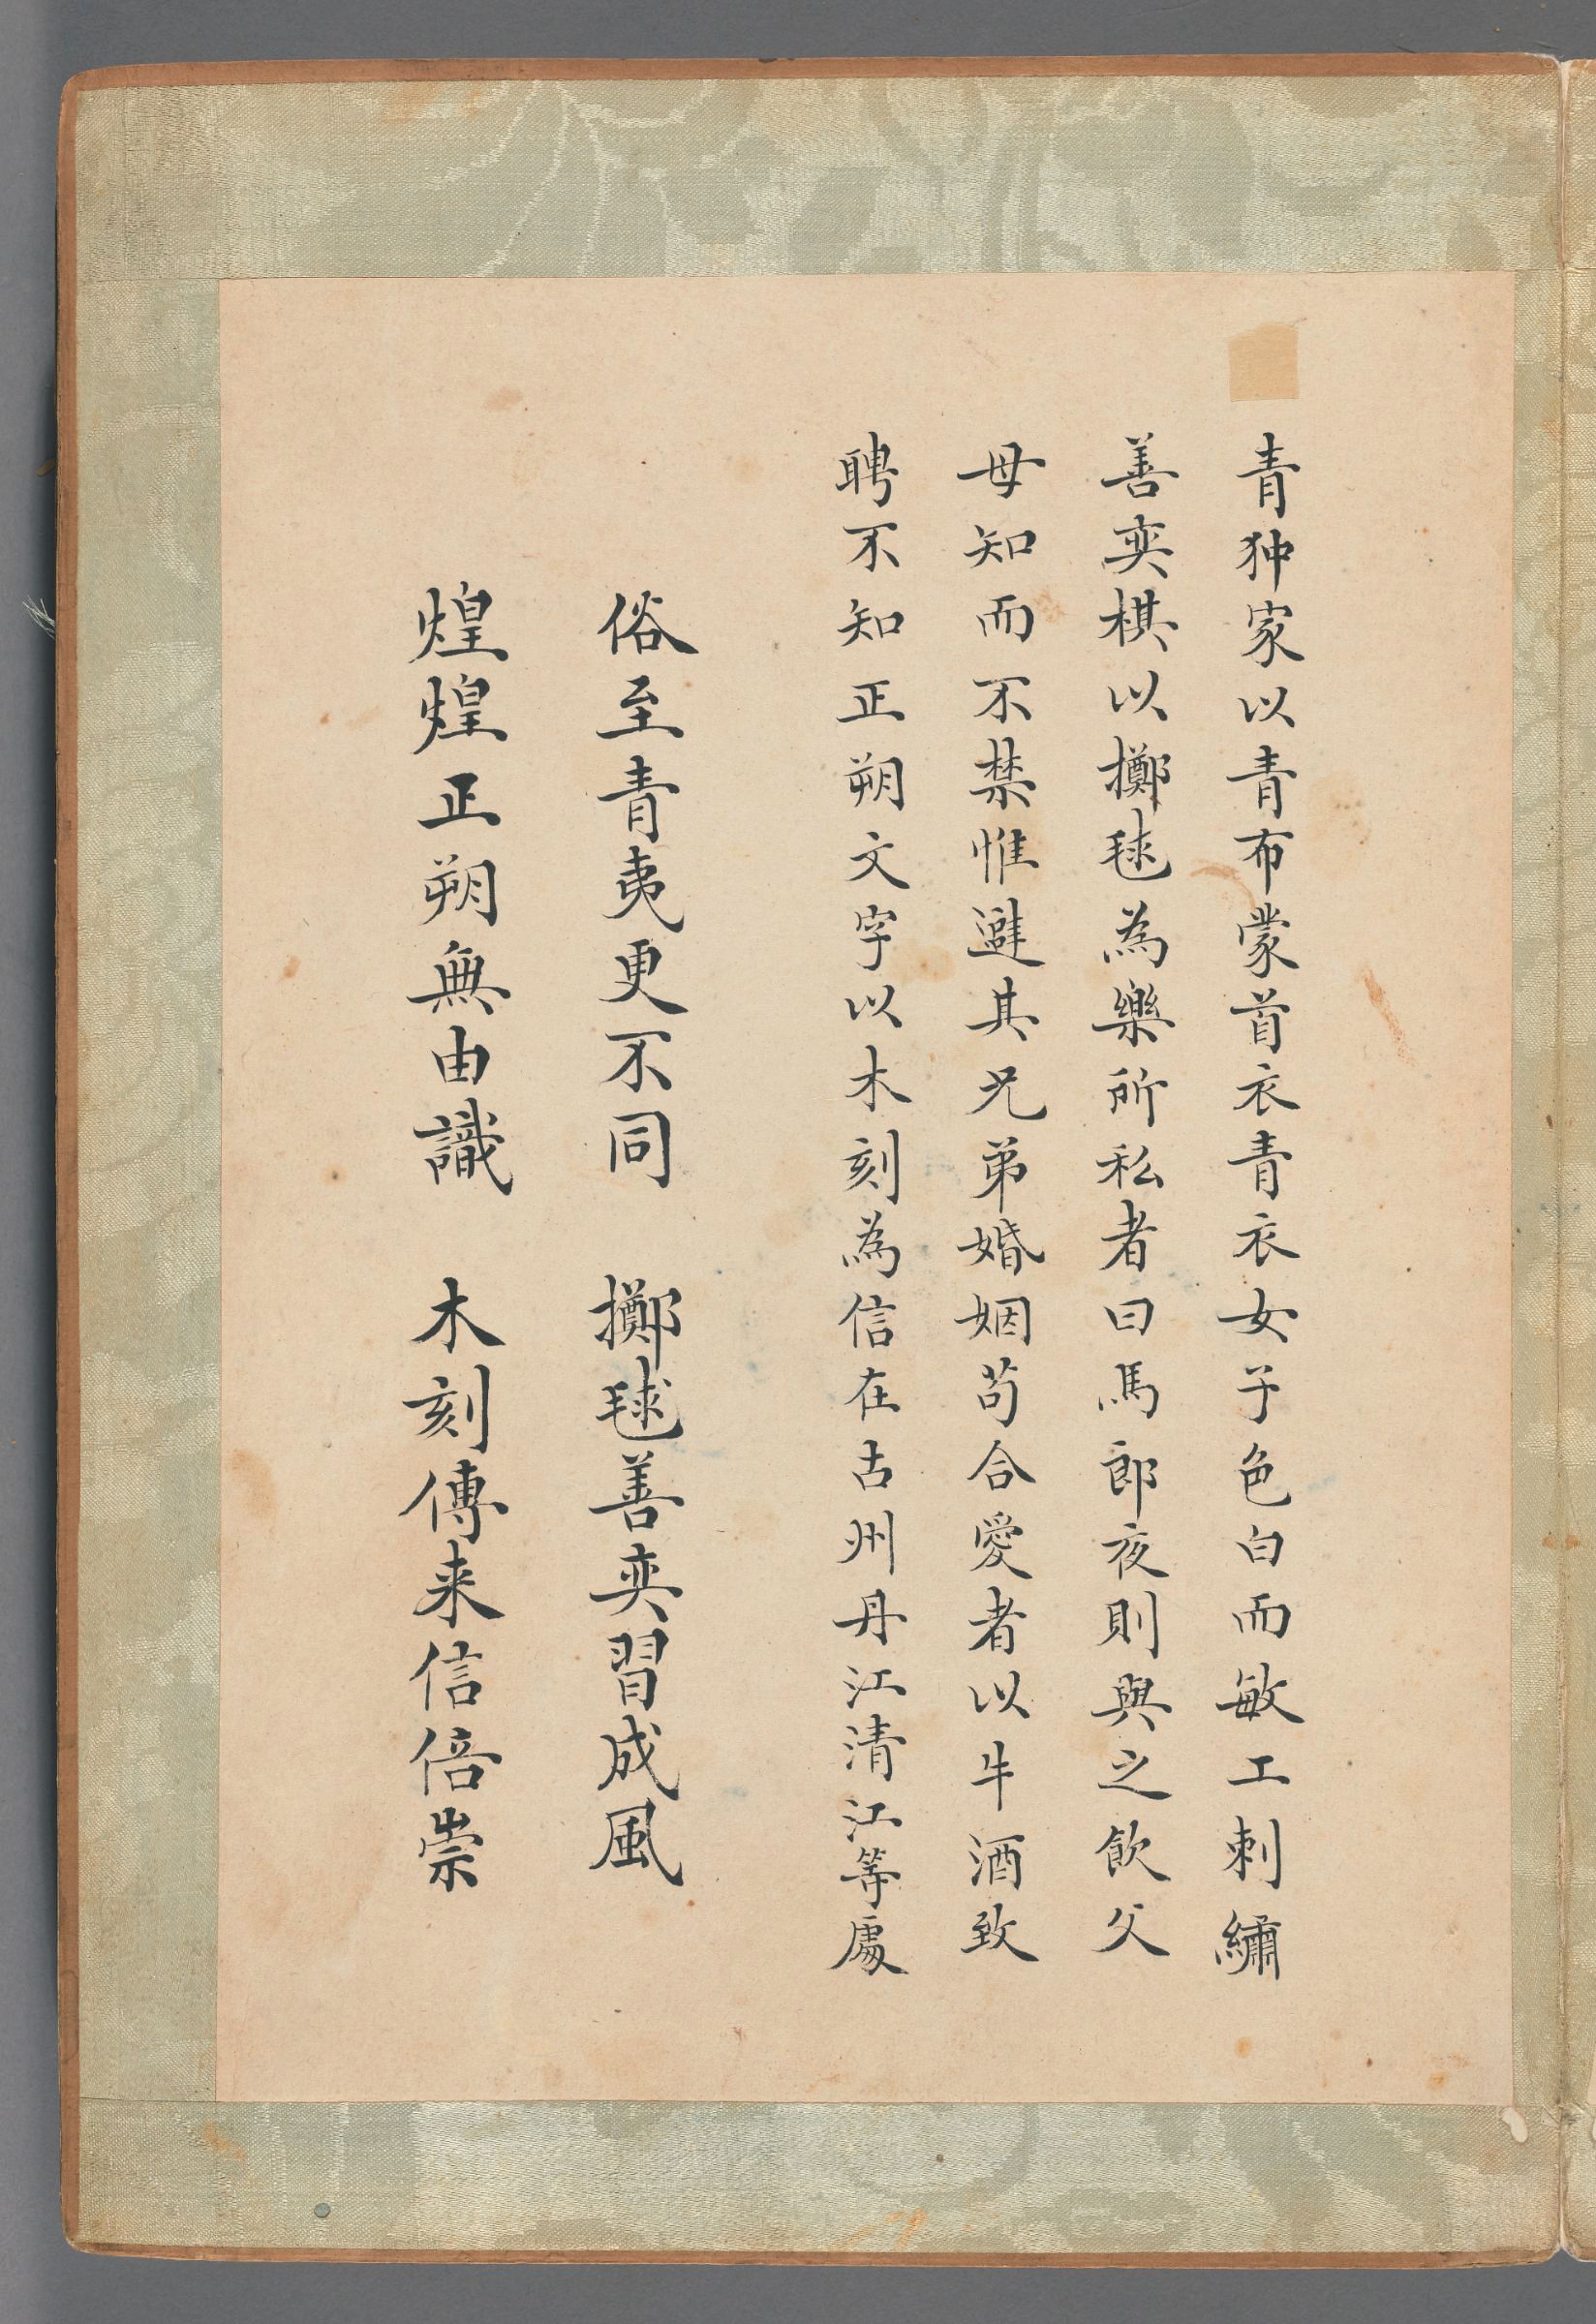 青狆家以青布蒙首衣青衣女子色白而敏工刺繡
善奕棋以擲毬為樂所私者曰馬郎夜則與之飲父
母知而不禁惟避其兄弟婚姻苟合愛者以牛酒致
聘不知正朔文字以木刻為信在古州丹江清江等處
俗至青夷更不同 擲毬善奕習成風
煌煌正朔無由識 木刻傳来信倍崇